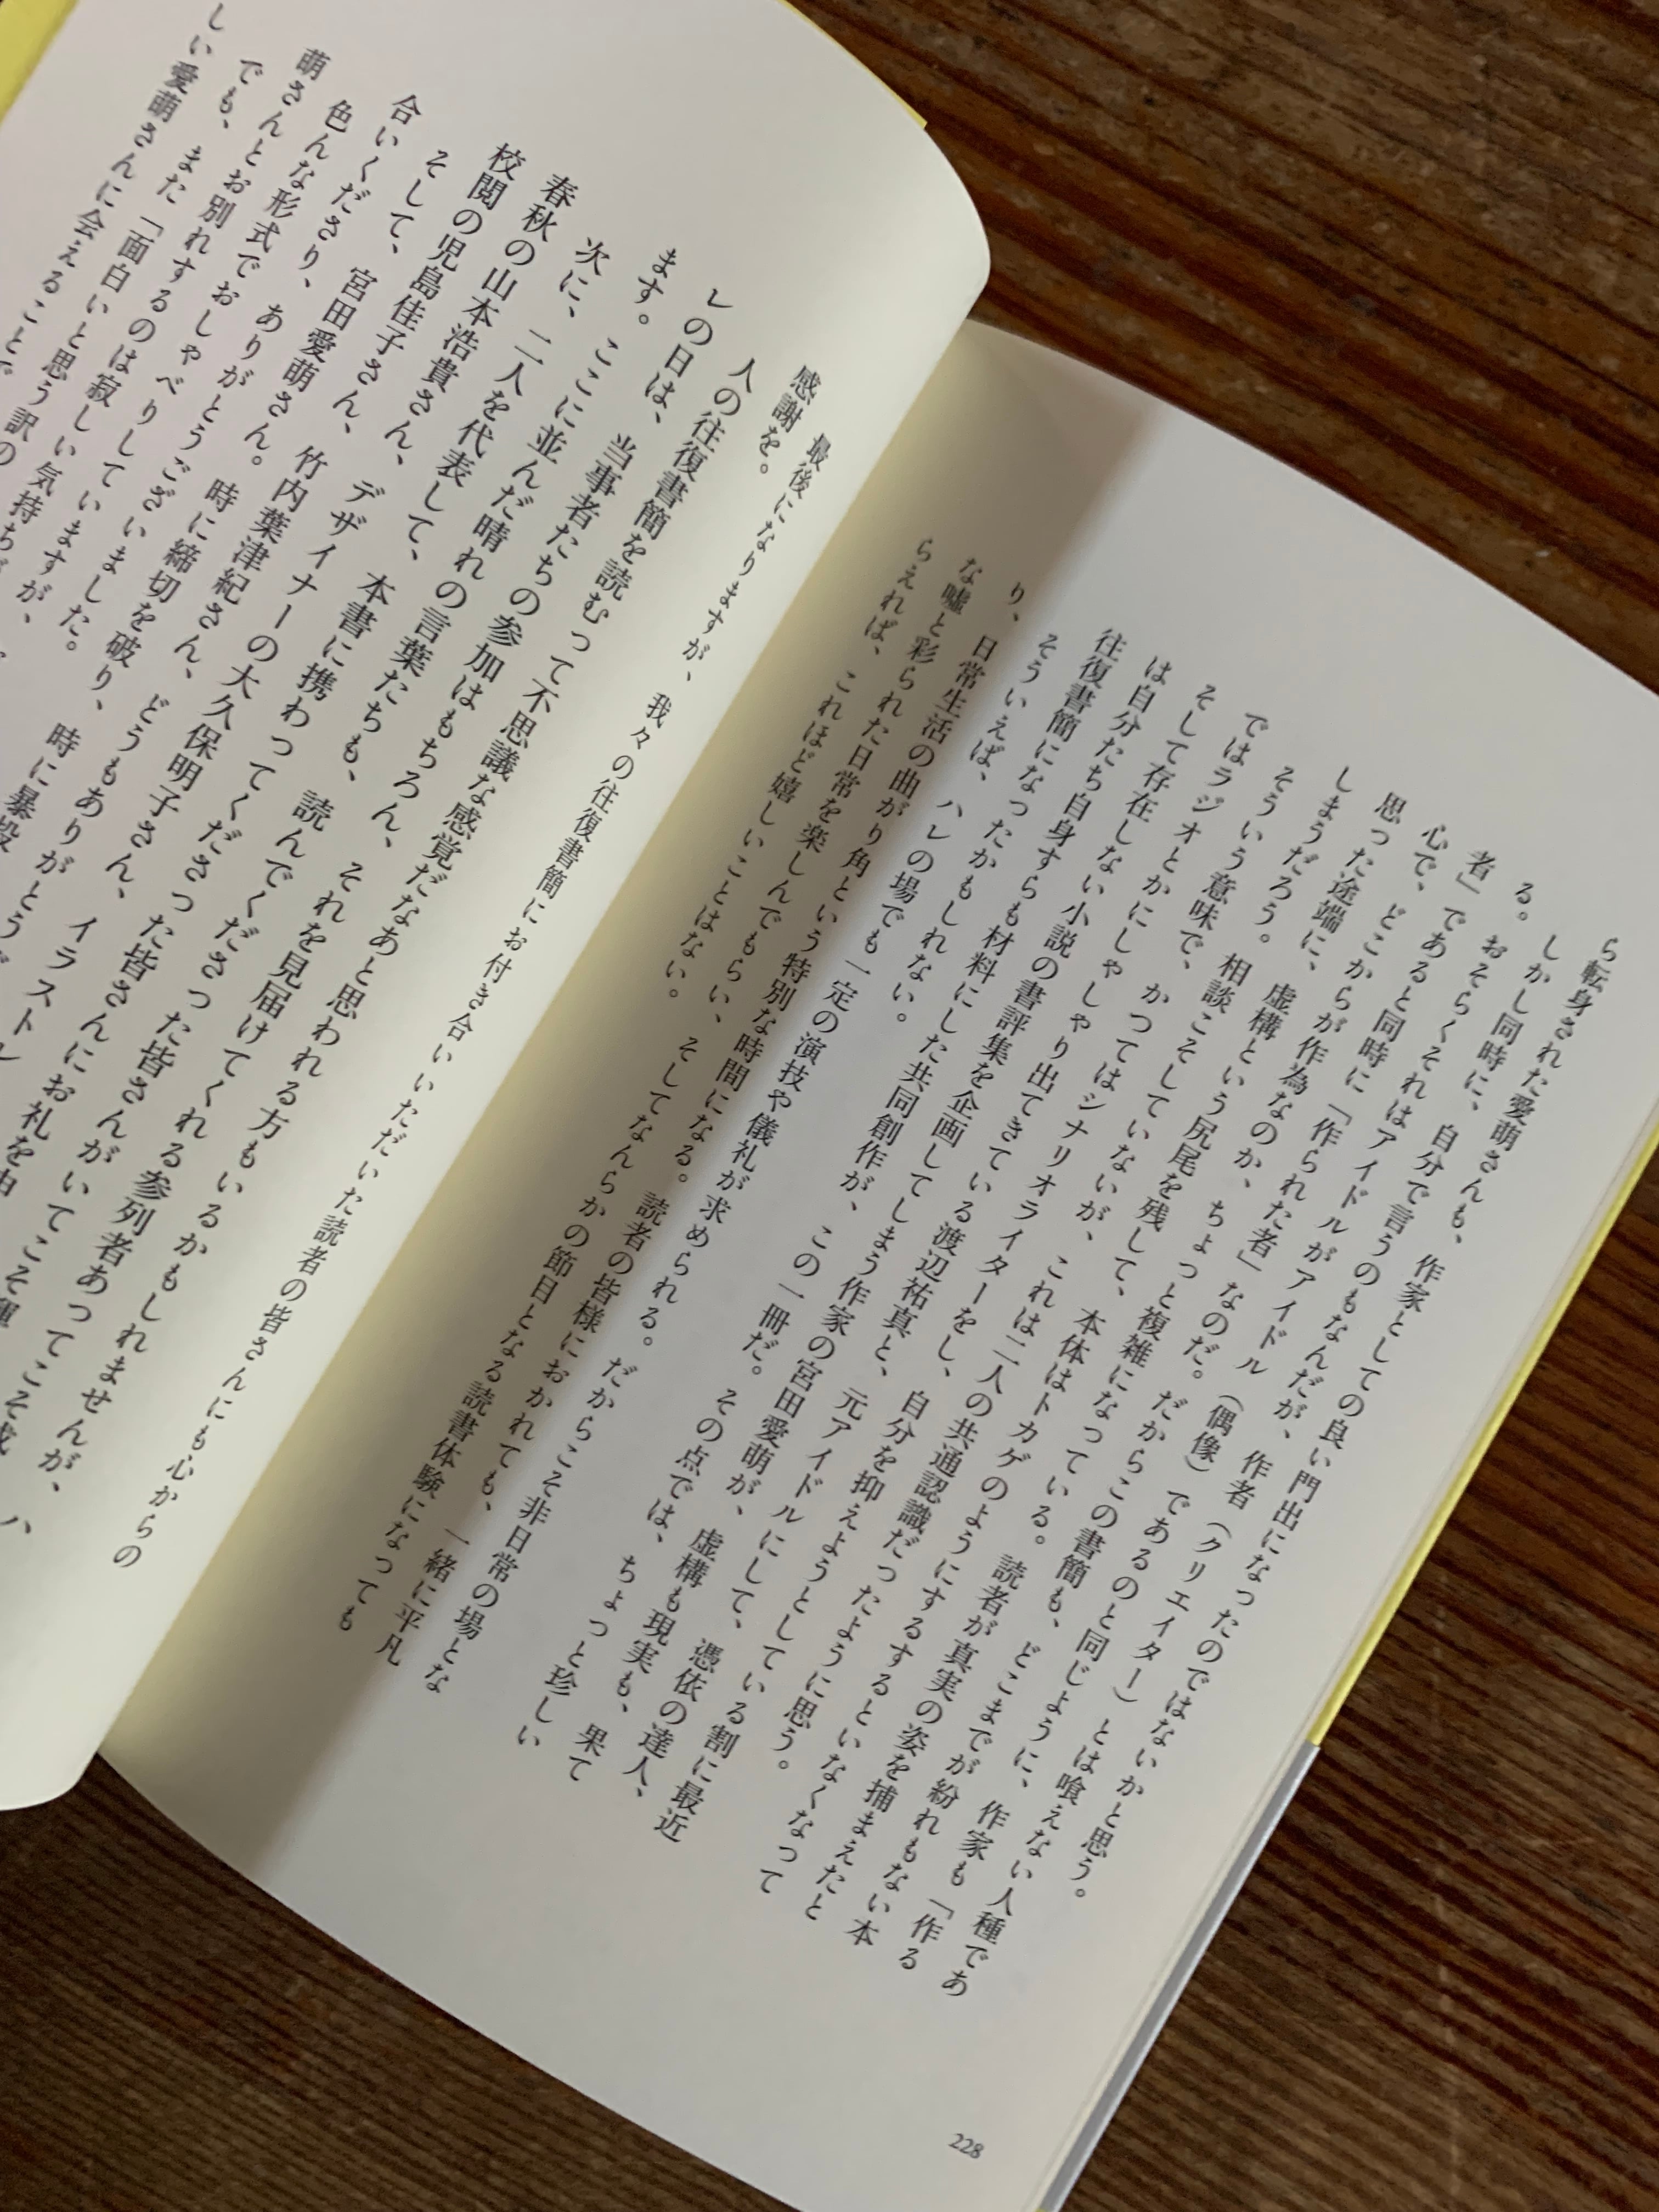 ら転身された愛萌さんも、作家としての良い門出になったのではないかと思う。
しかし同時に、自分で言うのもなんだが、作者（クリエイター）とは喰えない人種であ
る。おそらくそれはアイドルがアイドル（偶像）であるのと同じように、作家も「作る
者」であると同時に「作られた者」なのだ。だからこの書簡も、どこまでが紛れもない本
心で、どこからが作為なのか、ちょっと複雑になっている。読者が真実の姿を捕まえたと
思った途端に、虚構という尻尾を残して、本体はトカゲのようにするするといなくなって
しまうだろう。
そういう意味で、相談こそしていないが、これは二人の共通認識だったように思う。
かつてはシナリオライターをし、自分を抑えようとしている割に最近
ではラジオとかにしゃしゃり出てきている渡辺祐真と、元アイドルにして、憑依の達人、
そして存在しない小説の書評集を企画してしまう作家の宮田愛萌が、虚構も現実も、果て
は自分たち自身すらも材料にした共同創作が、この一冊だ。その点では、ちょっと珍しい
往復書簡になったかもしれない。
そういえば、ハレの場でも一定の演技や儀礼が求められる。だからこそ非日常の場とな
り、日常生活の曲がり角という特別な時間になる。読者の皆様におかれても、一緒に平凡
な嘘と彩られた日常を楽しんでもらい、そしてなんらかの節目となる読書体験になっても
らえれば、これほど嬉しいことはない。
228
最後になりますが、我々の往復書簡にお付き合いいただいた読者の皆さんにも心からの
感謝を。
人の往復書簡を読むって不思議な感覚だなあと思われる方もいるかもしれませんが、ハ
レの日は、当事者たちの参加はもちろん、それを見届けてくれる参列者あってこそ成
ます。ここに並んだ晴れの言葉たちも、読んでくださった皆さんがいてこそ輝
次に、二人を代表して、本書に携わってくださった皆さんにお礼を申
春秋の山本浩貴さん、デザイナーの大久保明子さん、イラストレ
校閲の児島佳子さん、竹内葉津紀さん、どうもありがとうご
そして、宮田愛萌さん。時に締切を破り、時に暴投
合いくださり、ありがとうございました。
色んな形式でおしゃべりしていますが、
萌さんとお別れするのは寂しい気持ちが
でも、また「面白いと思う訳の
しい愛萌さんに会えることで